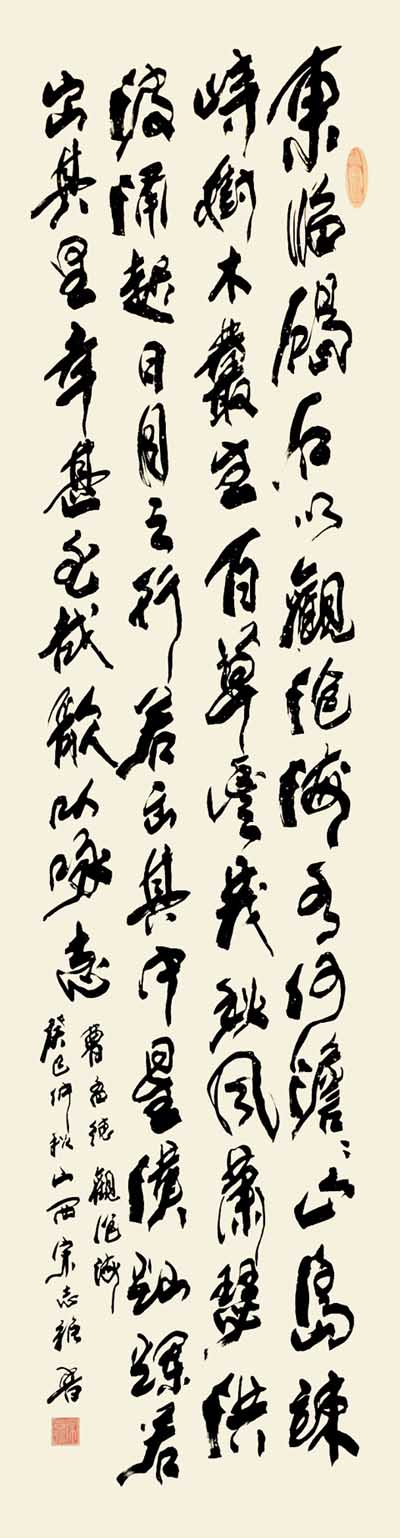 東临碣石以觀滄海水何澹〻山島竦
峙樹木叢生百草豐茂秋風蕭瑟洪
波涌起日月之行若出其中星漢灿爛若
出其里幸甚至哉歌以咏志
曹孟德觀滄海
癸巳仲秋山西宋志書